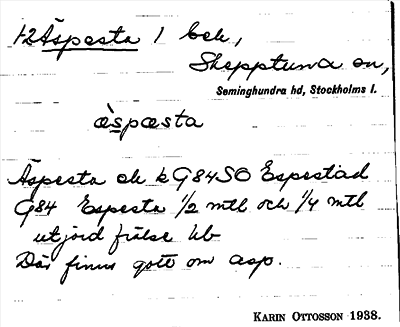 12 Äspesta 1 beb.,
Skepptuna sn,
Seminghundra hd, Stockholms l.
æspæsta
Äspesta ek k G84SO Espestad
G84 Espesta 1/2 mtl och 1/4 mtl
utjord frälse hb
Där finns gott om asp.
KARIN OTTOSSON 1938.